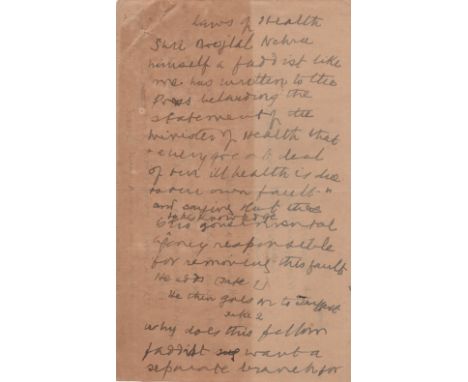 Laws of Health
Shri Brijlal Nehru
himself a faddist like
me has written to the
Press belauding the
statement of the
Minister of Health that
"a very great deal
of our ill health is due
to our own fault"
and saying that there
to take knowledge
is no governmental
agency responsible
for removing this fault.
He adds (take 1)
He then goes on to suggest
take 2
Why does this fellow
faddist want a
separate branch for